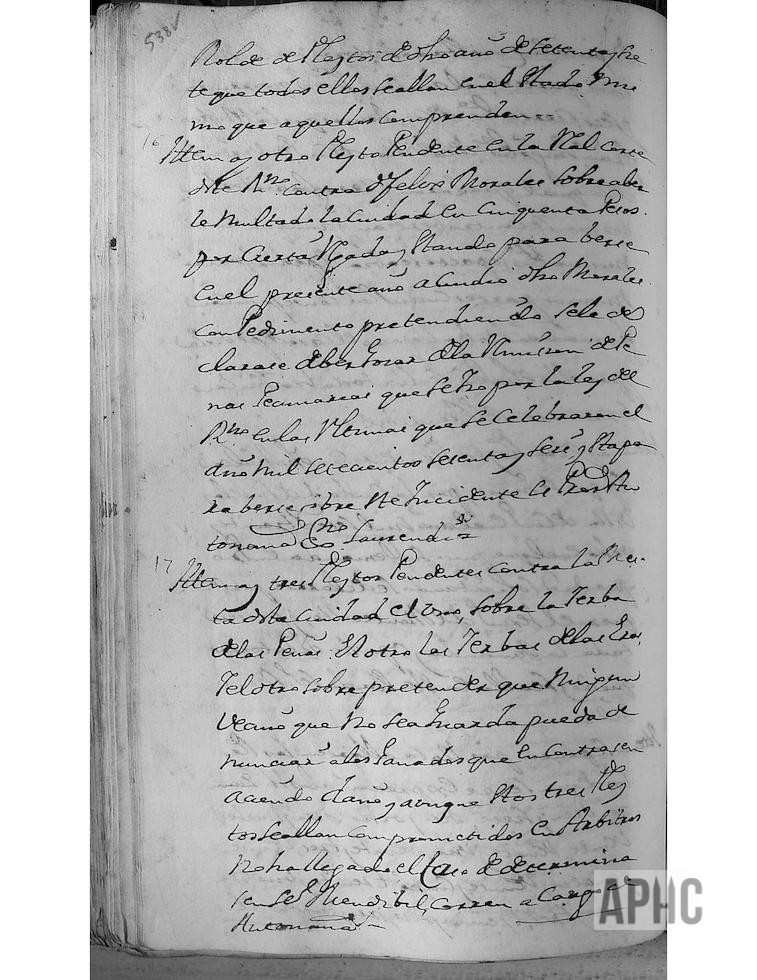 538v
Rolde de Pleytos de dho año de setenta y sie
te que todos ellos se allan en el stado mis
mo que aquellos comprenden
16 Ittem ay otro Pleyto Pendente en la Real Corte
deste Rno contra dn felix Morales sobre aber
le Multado la Ciudad en Cinquenta Pesos
por Cierta y stando para berse
en el presente año acudio dho Morales
con Pedimento pretendiendo se le de
clarase deber gozar de la de Pe
nas Pecuniarias que se hizo por la ley del
Rno en las Ultimas que se Celebraron el
año mil setecientos setenta y seis y sta pa
ra berse sobre ste Incidente es Proor An
tonana Esno Laurendi
17 Ittem ay tres Pleytos Pendentes contra la Mes
ta desta Ciudad el uno, sobre la Yerba
de las Penas. El otro las Yerbas de las Eras,
Y el otro sobre pretender que Ningun
Vecino que No sea Guarda pueda de
nunciar a los Ganados que encontrasen
aciendo daño y aunque stos tres Pley
tos se allan comprometidos en Arbitros
No ha llegado el Caso de determina
sen Se Mendibil, Corren a Cargo de
Antonana
APHC